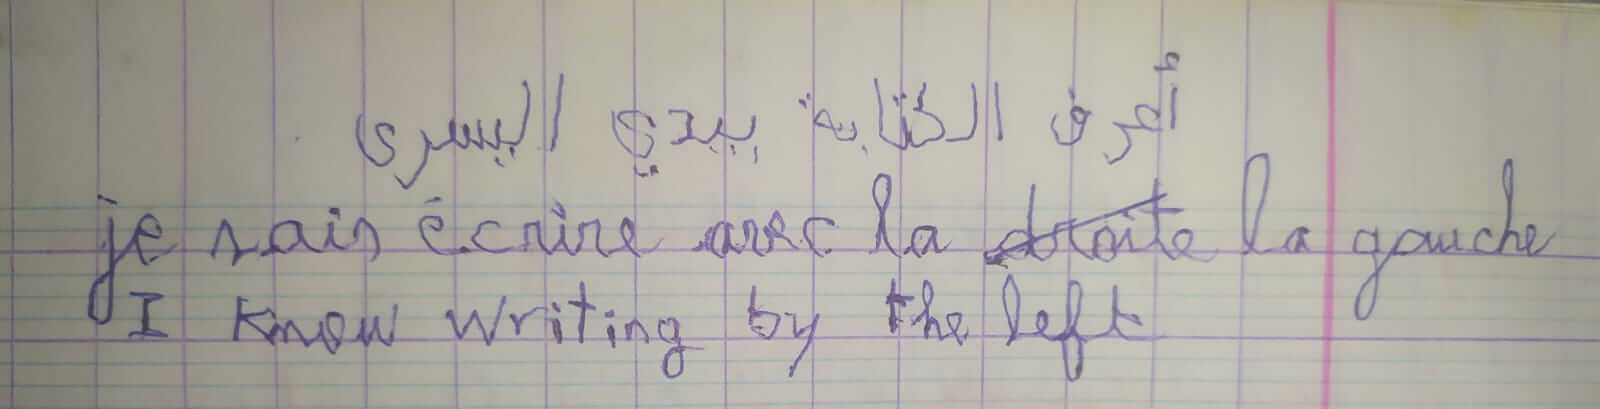 أعرف الكتابة بيدي اليسرى
je sais écrire avec la droite la gauche
I know writing by the left